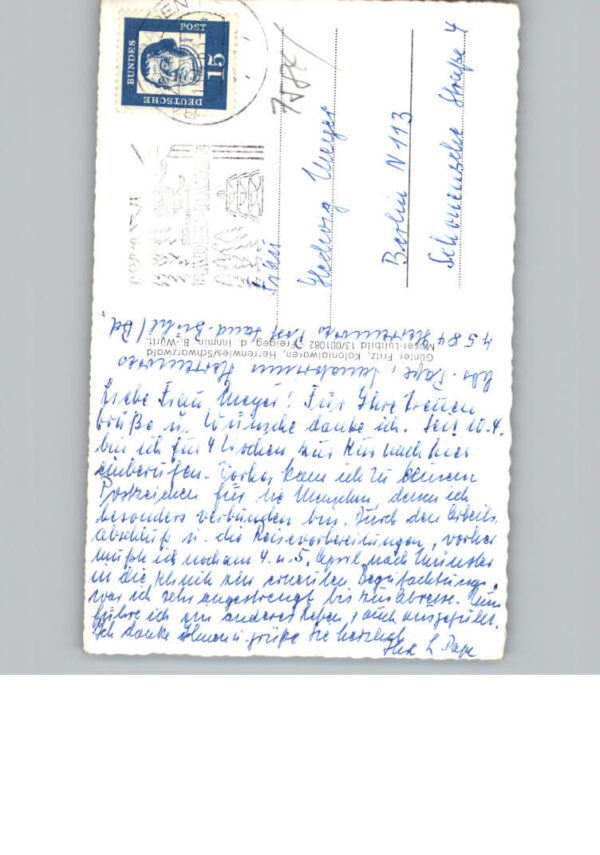 DEUTSCHE
BUNDES
POST
15
7584
Frau
Hedwig Meyer
Berlin N 113
Straße 4
Günter Fritz, Kolonialwaren, Herrenwies/Schwarzwald
Meser-Luftbild 13/001082 Freigeg. d. Inmin. B.-Württ.
Pape, Sanatorium Herrenwies
7584 Herrenwies Post Sand-Bühl/Bd.
Liebe Frau Meyer! Für Ihre treuen
Grüße u. Wünsche danke ich. Seit 10.4.
bin ich für 4 Wochen zur Kur nach hier
einberufen. Vorher kam ich zu keinem
Postzeichen für die Menschen, denen ich
besonders verbunden bin. Durch den Arbeits-
abschluß u. die Reisevorbereitungen, vorher
mußte ich noch am 4. u. 5. April nach Münster
in die Klinik zur erneuten Begutachtung,
war ich sehr angestrengt bis zur Abreise. Nun
führe ich ein anderes Leben, auch ausgefüllt.
Ich danke Ihnen u. grüße Sie herzlich
Ihre L. Pape